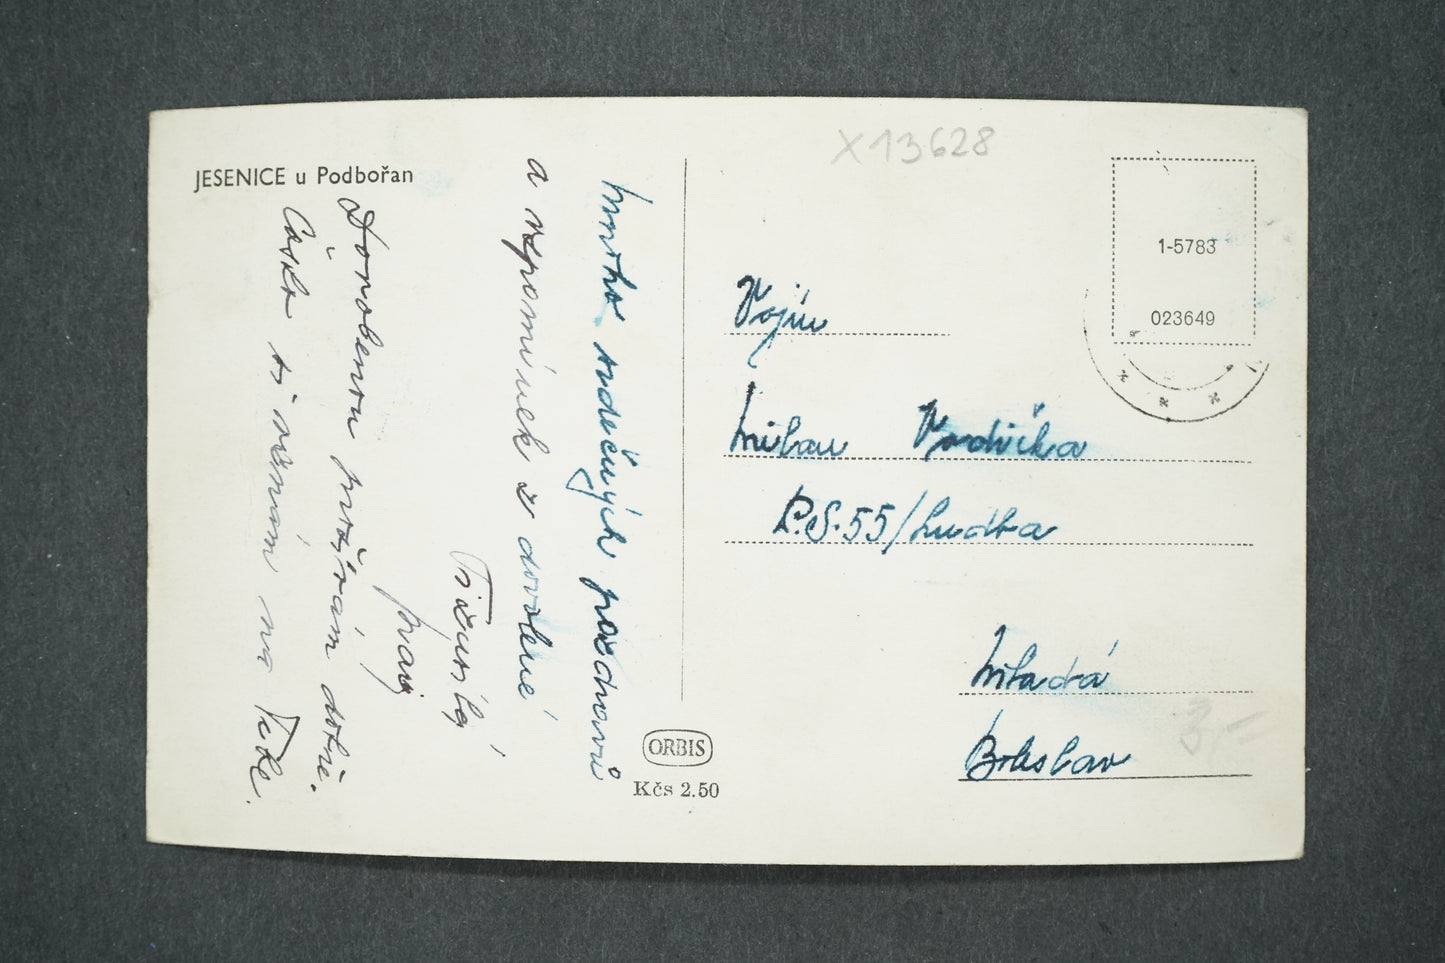 JESENICE u Podbořan
Mnoho srdečných pozdravů
a vzpomínek z dovolené
prají
Dovolenou prožívám dobře.
Často si vzpomínám na Tebe.
ORBIS
Kčs 2.50
X13628
1-5783
023649
Vojín
Milan Vodička
P.S.55/hudba
Mladá
Boleslav
3,-